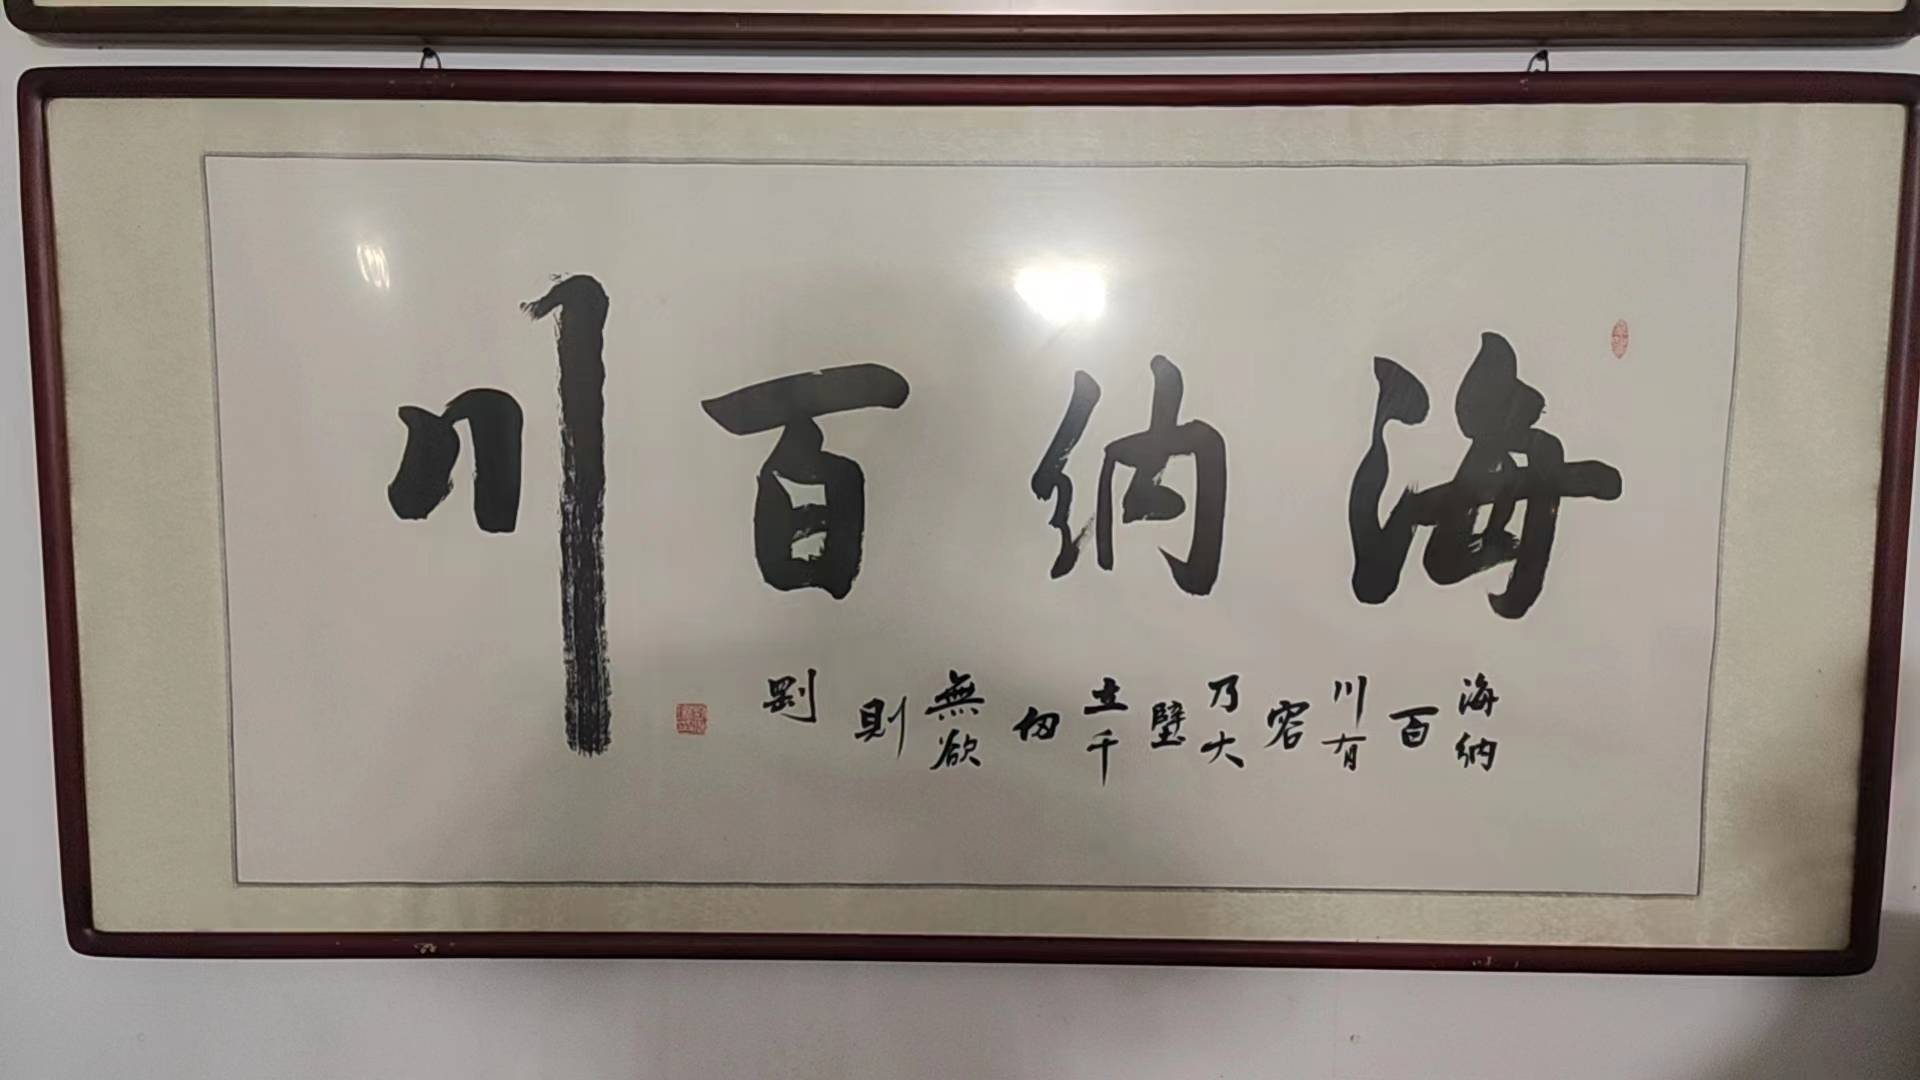 海纳百川
海纳百川有容乃大壁立千仞無欲則剛